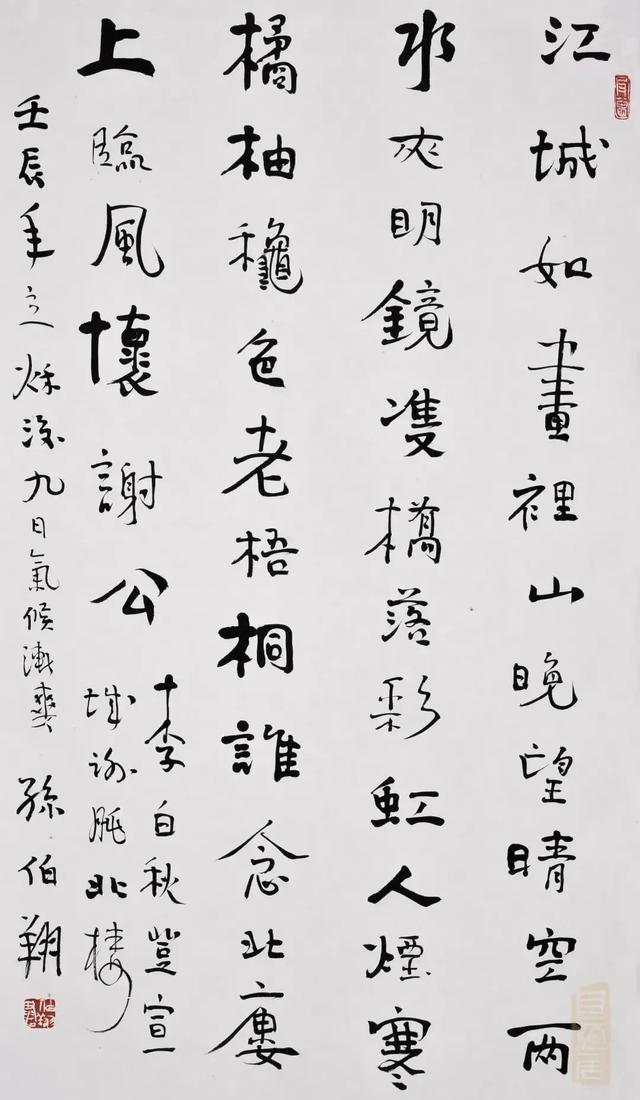 江城如畫裡山晚望晴空兩
水夾明鏡雙橋落彩虹人煙寒
橘柚龝色老梧桐誰念北廔
上臨風懷謝公
李白秋登宣
城謝脁北樓
壬辰年立秋後九日氣候漸爽 孫伯翔